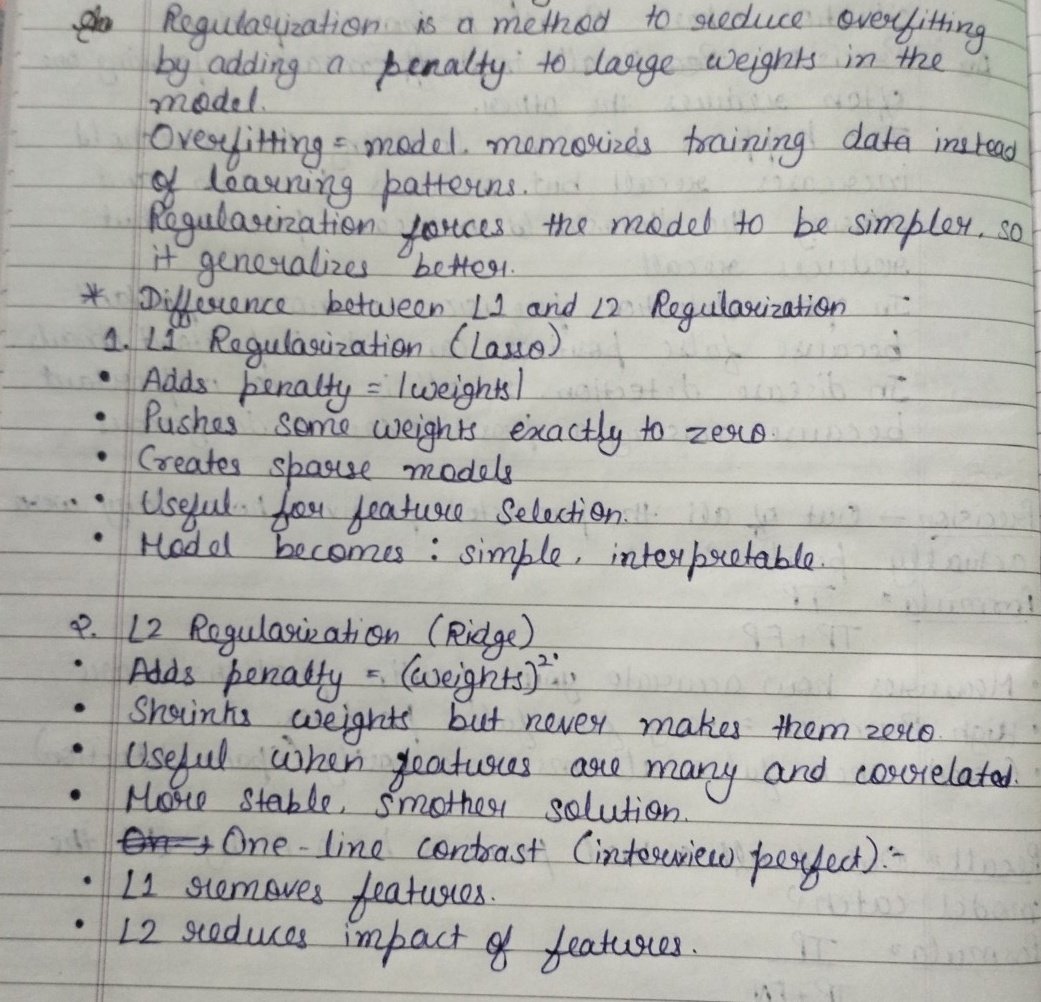 Regularization is a method to reduce overfitting
by adding a penalty to large weights in the
model.
Overfitting = model memorizes training data instead
of learning patterns.
Regularization forces the model to be simpler, so
it generalizes better.
* Difference between L1 and L2 Regularization
1. L1 Regularization (Lasso)
• Adds penalty = |weights|
• Pushes some weights exactly to zero.
• Creates sparse models
• Useful for feature selection.
• Model becomes : simple, interpretable.
2. L2 Regularization (Ridge)
• Adds penalty = (weights)²
• Shrinks weights but never makes them zero.
• Useful when features are many and correlated.
• More stable, smother solution.
One-line contrast (interview perfect):-
• L1 removes features.
• L2 reduces impact of features.